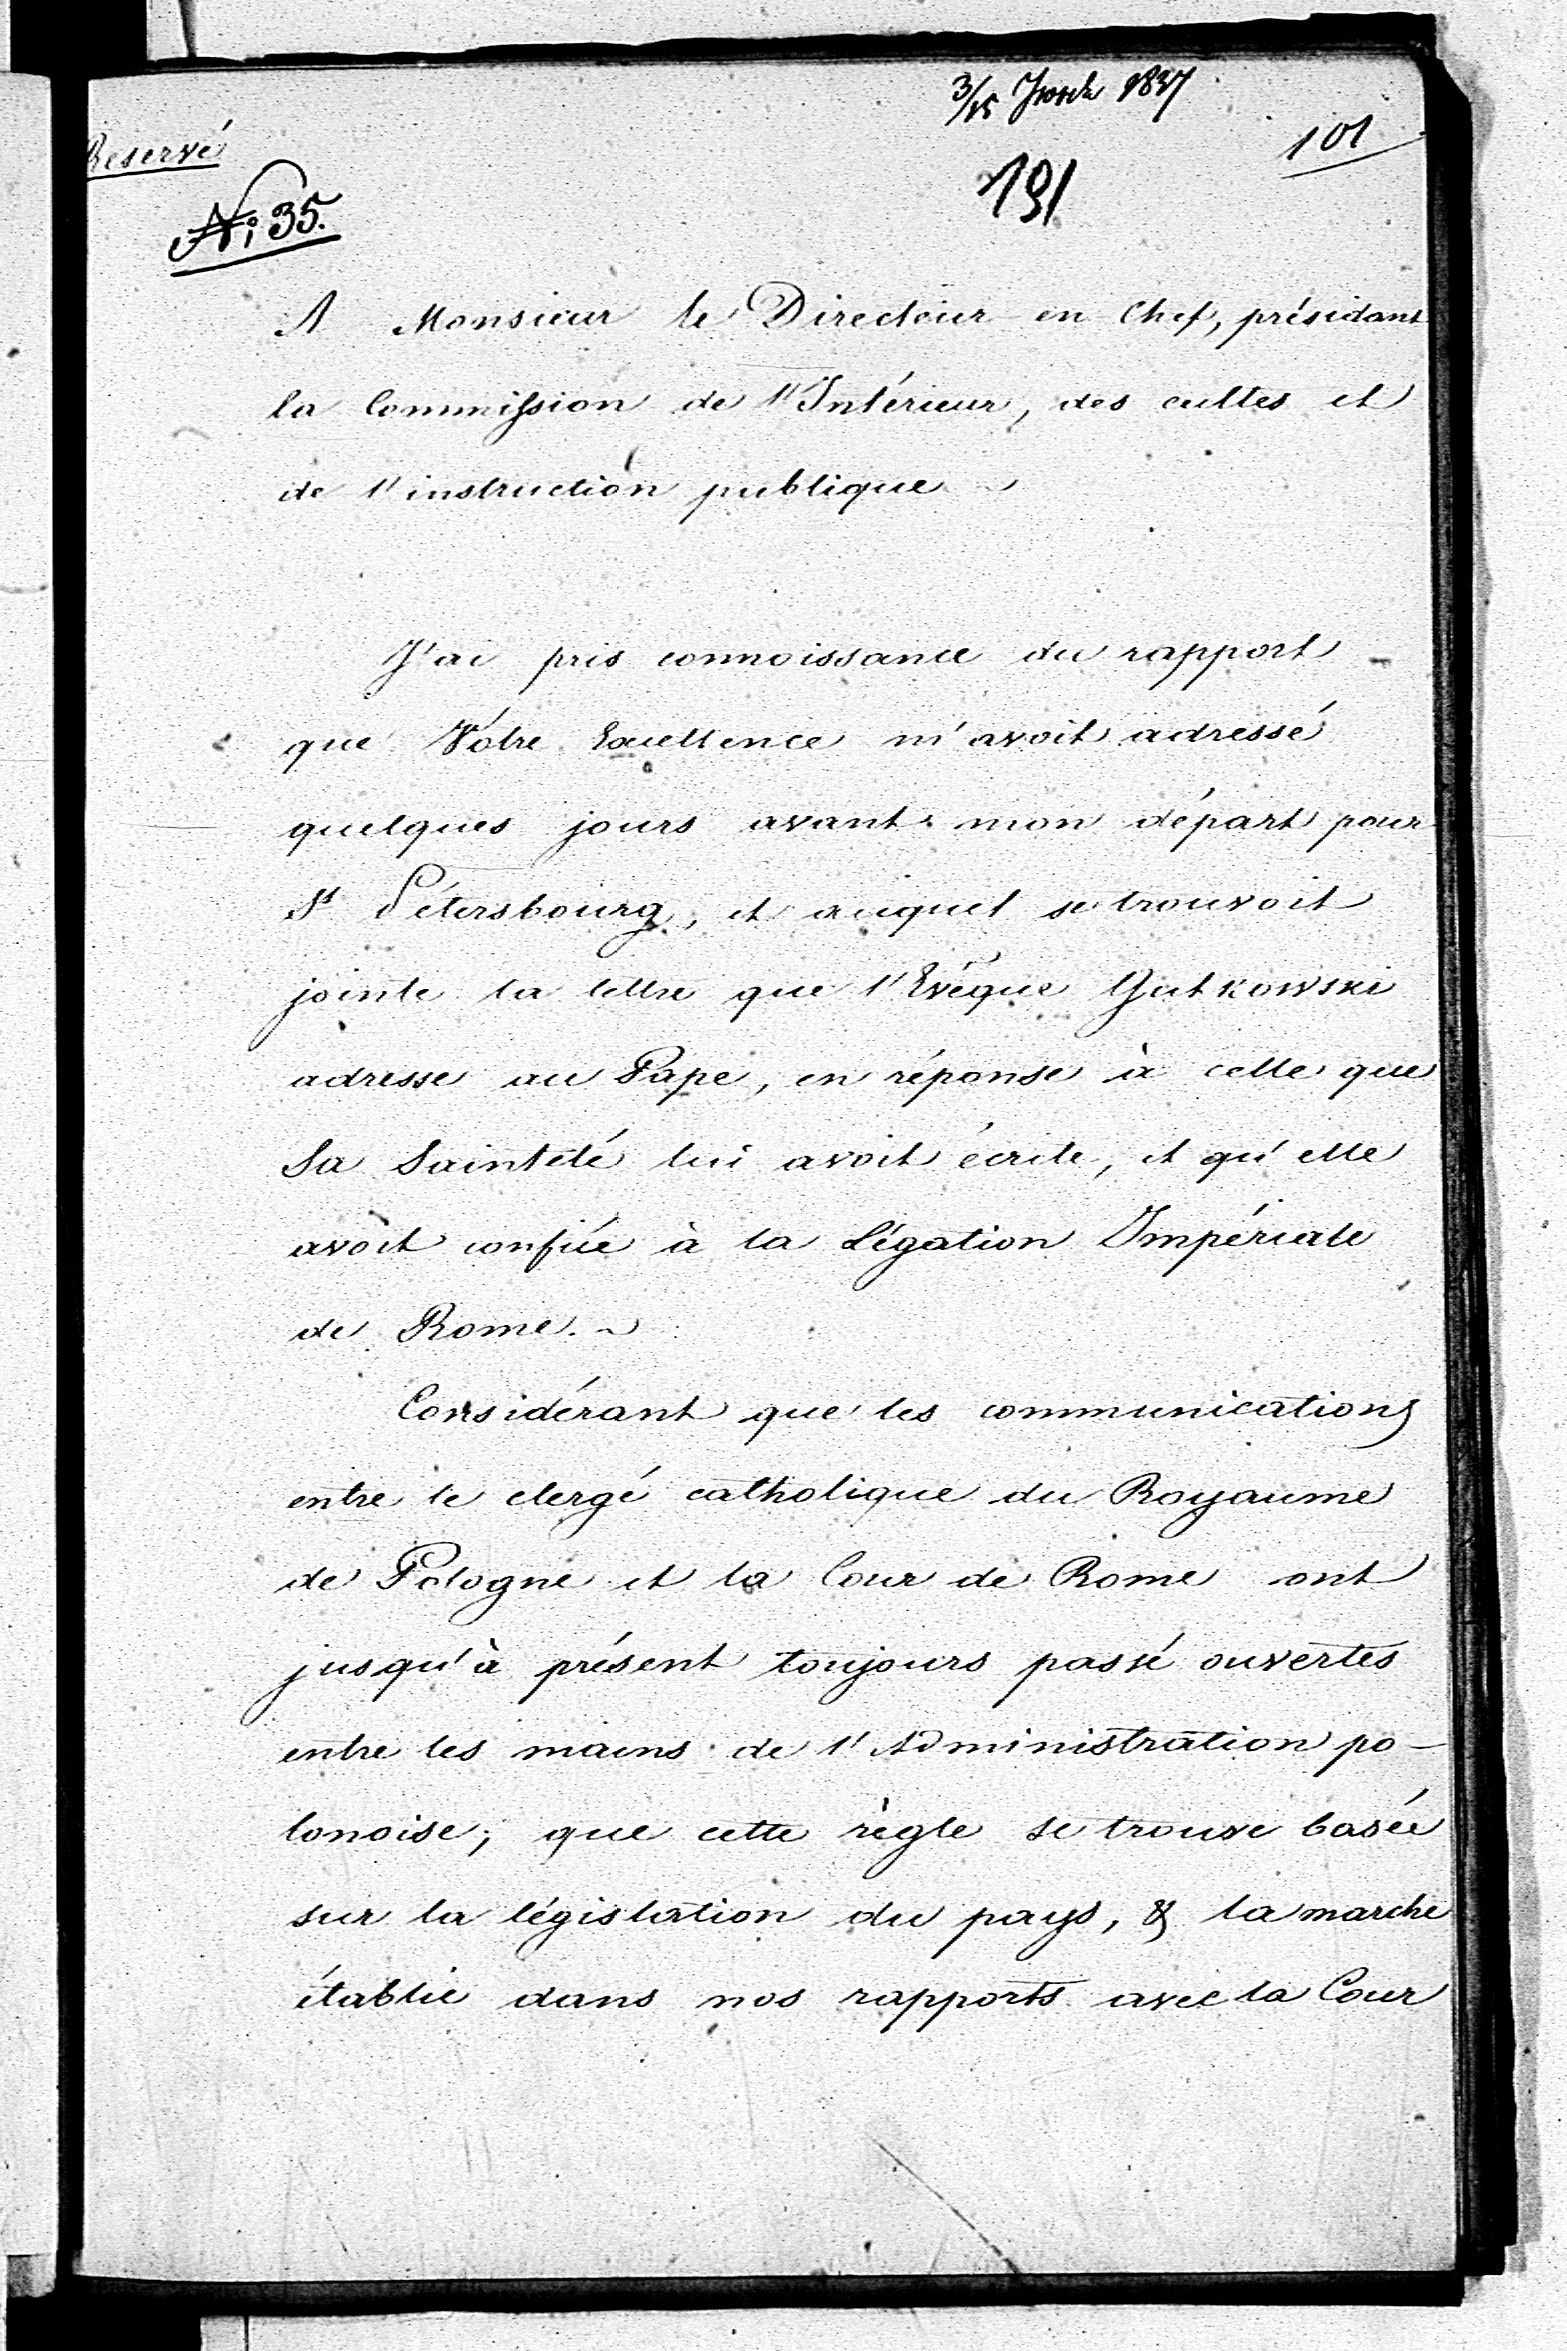 3/15 1837
101
Reservé
191
№ 35.
A Monsieur le Directeur en Chef, présidant
la Commission de l'Intérieur, des cultes et
de l'instruction publique
J'ai pris connoissance du rapport
que Vôtre Excellence m'avoit adressé
quelques jours avant mon départ pour
St Pétersbourg, et auquel se trouvoit
jointe la lettre que l'Evêque Gutkowski
adresse au Pape, en réponse à celle que
Sa Sainteté lui avoit écrite, et qu'elle
avoit confiée à la Légation Impériale
de Rome.
Considérant que les communications
entre le clergé catholique du Royaume
de Pologne et la Cour de Rome ont
jusqu'à présent toujours passé ouvertes
entre les mains de l'Administration po-
lonoise; que cette règle se trouve basée
sur la législation du pays, & la marche
établie dans nos rapports avec la Cour